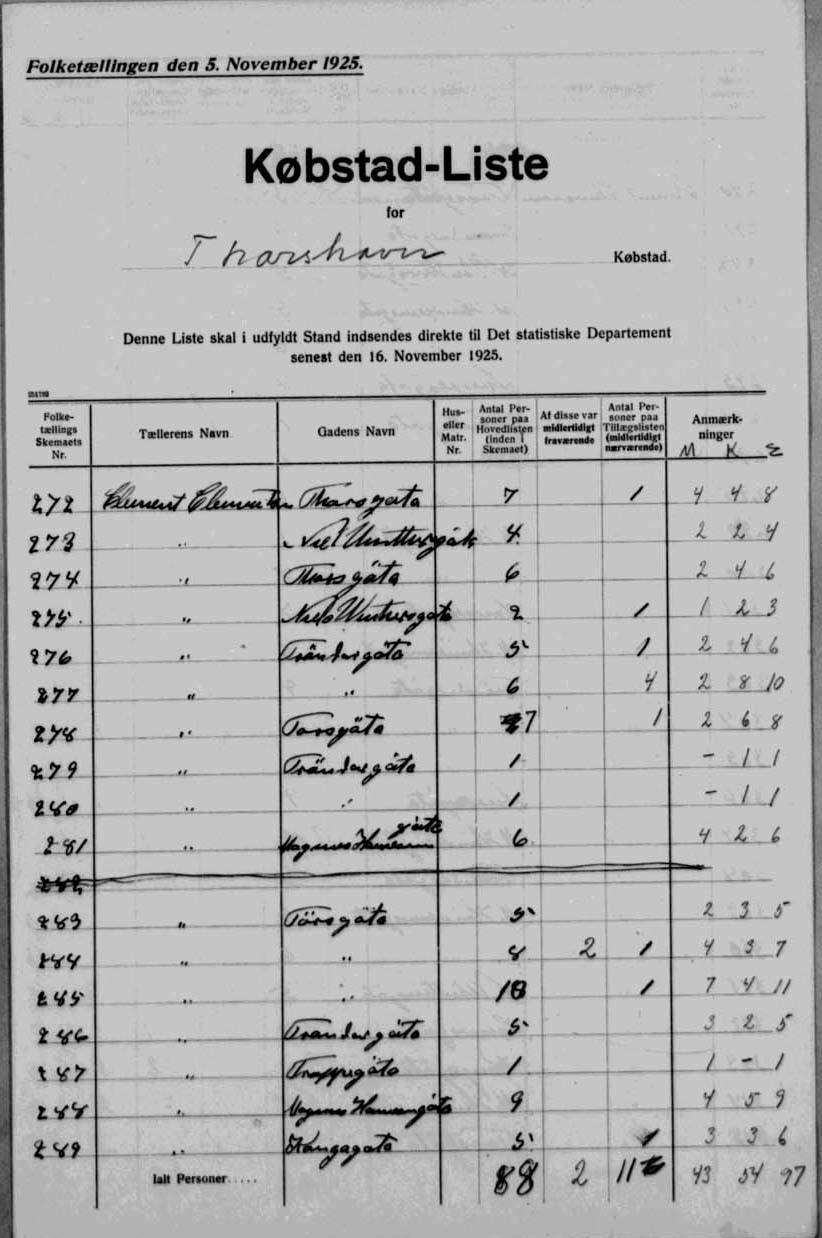 Folketællingen den 5. November 1925.
Købstad-Liste
for
Thorshavn Købstad.
Denne Liste skal i udfyldt Stand indsendes direkte til Det statistiske Departement
senest den 16. November 1925.
Folke-tællings Skemaets Nr. Tællerens Navn Gadens Navn Hus- eller Matr. Nr. Antal Per-soner paa Hovedlisten (inden i Skemaet) Af disse var midlertidigt fraværende Antal Per-soner paa Tillægslisten (midlertidigt nærværende) Anmærk-ninger M K E
272 Clement Clementsen Tharsgøta 7 1 4 4 8
273 " Niels Winthersgøta 4 2 2 4
274 " Tharsgøta 6 2 4 6
275. " Niels Winthersgøta 2 1 1 2 3
276 " Tröndargöta 5 1 2 4 6
277 " " 6 4 2 8 10
278 " Torsgöta 7 1 2 6 8
279 " Tröndargöta 1 - 1 1
280 " " 1 - 1 1
281 " Magnus Hansens gøta 6 4 2 6
282
283 " Törsgøta 5 2 3 5
284 " " 8 2 1 4 3 7
285 " " 10 1 7 4 11
286 " Trøndargöta 5 3 2 5
287 " Trappugöta 1 1 - 1
288 " Magnus Hansengöta 9 4 5 9
289 " Kongagøta 5 1 3 3 6
Ialt Personer..... 88 2 11 43 54 97